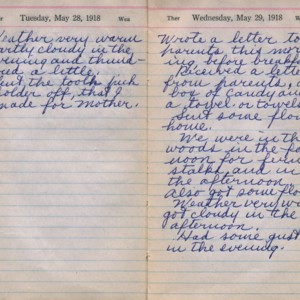 Ther. Tuesday, May 28, 1918 Wea
Weather very warm
partly cloudy in the
evening and thund-
ed a little.
Sent the tooth pick
holder off, that I
made for Mother.
Ther. Wednesday, May 29, 1918
Wrote a letter to
parents this morn-
ing before breakfas
Received a letter
from parents, a
box of candy an
a towel or towel
Sent some flow
home.
We were in the
woods in the for
noon for fern
stalks, and in
the afternoon
Also got some flo
Weather very wa
got cloudy in the
afternoon.
Had some gust
in the evening.